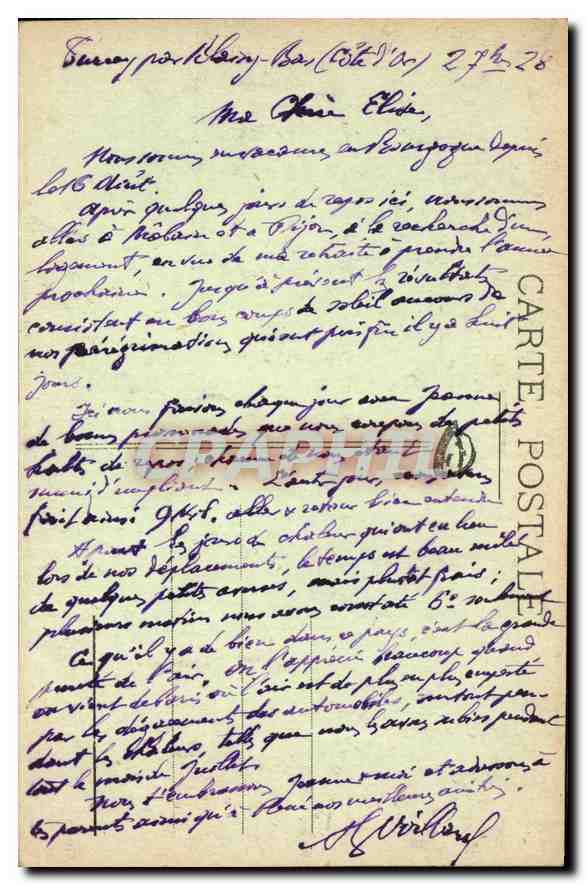 par Blaisy-Bas (Côte d'Or) 27bre 28
Ma Chère Elise,
Nous sommes en vacances en Bourgogne depuis
le 16 Août.
Après quelques jours de repos ici, nous sommes
allés à Mâlain et à Dijon, à la recherche d'un
logement, en vue de ma retraite à prendre l'année
prochaine. Jusqu'à présent les résultats
consistent en bons coups de soleil au cours de
nos pérégrinations qui ont pris fin il y a huit
jours.
Ici nous faisons chaque jour avec Jeanne
de bonnes promenades que nous coupons de petits
haltes de repos, chacun de nous étant
muni d'un pliant. L'autre jour, nous avons
fait ainsi 9 Kil. aller & retour bien entendu
A part les jours de chaleur qui ont eu lieu
lors de nos déplacements, le temps est beau mêlé
de quelques petites averses, mais plutôt frais ;
plusieurs matins nous avons constaté 6° seulement
Ce qu'il y a de bien dans ce pays, c'est la grande
pureté de l'air. On l'apprécie beaucoup quand
on vient de Paris où l'air est de plus en plus empesté
par les dégagements des automobiles, surtout pen-
dant les chaleurs, telles que nous les avons subies pendant
tout le mois de Juillet.
Nous t'embrassons Jeanne & moi et adressons à
tes parents ainsi qu'à nos meilleures amitiés.
CARTE POSTALE
CPAPHIL